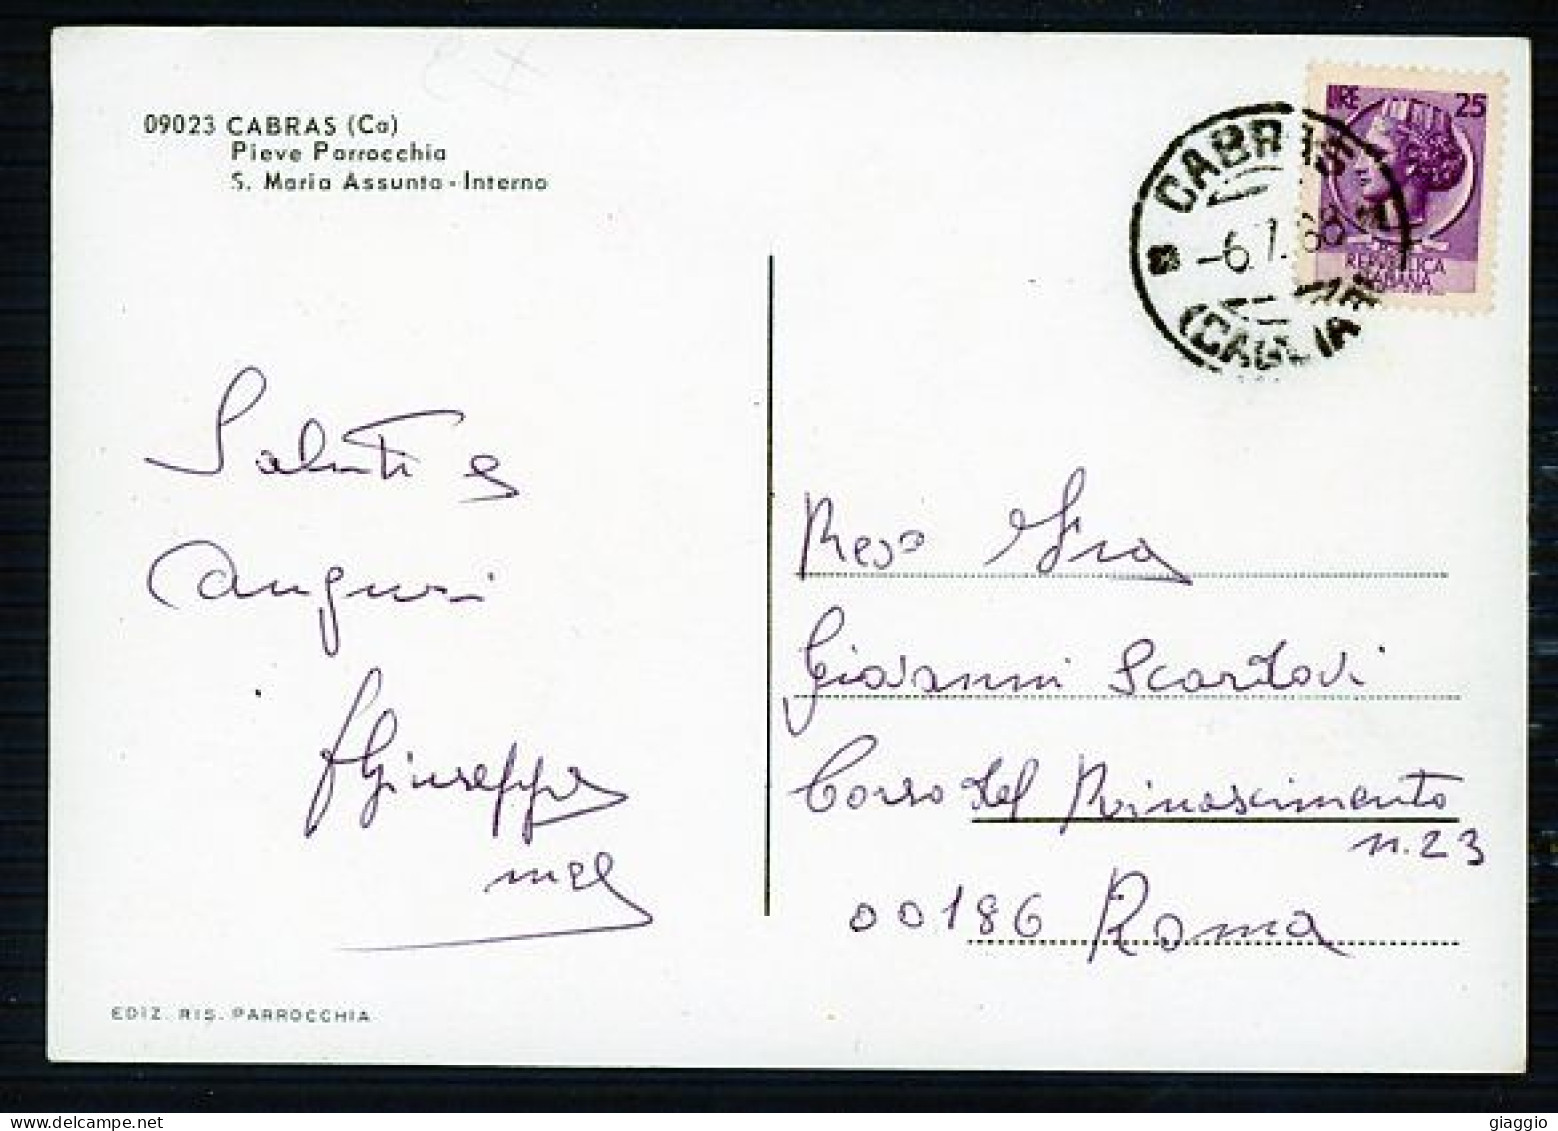 09023 CABRAS (Ca)
Pieve Parrocchia
S. Maria Assunta - Interno
LIRE 25
REPVBBLICA
ITALIANA
CABRAS
-6.1.68
(CAGLIARI)
Saluti e
auguri
f Giuseppe
Rev° Fra
Giovanni Scardovi
Corso del Rinascimento
n. 23
00186 Roma
EDIZ. RIS. PARROCCHIA
giaggio